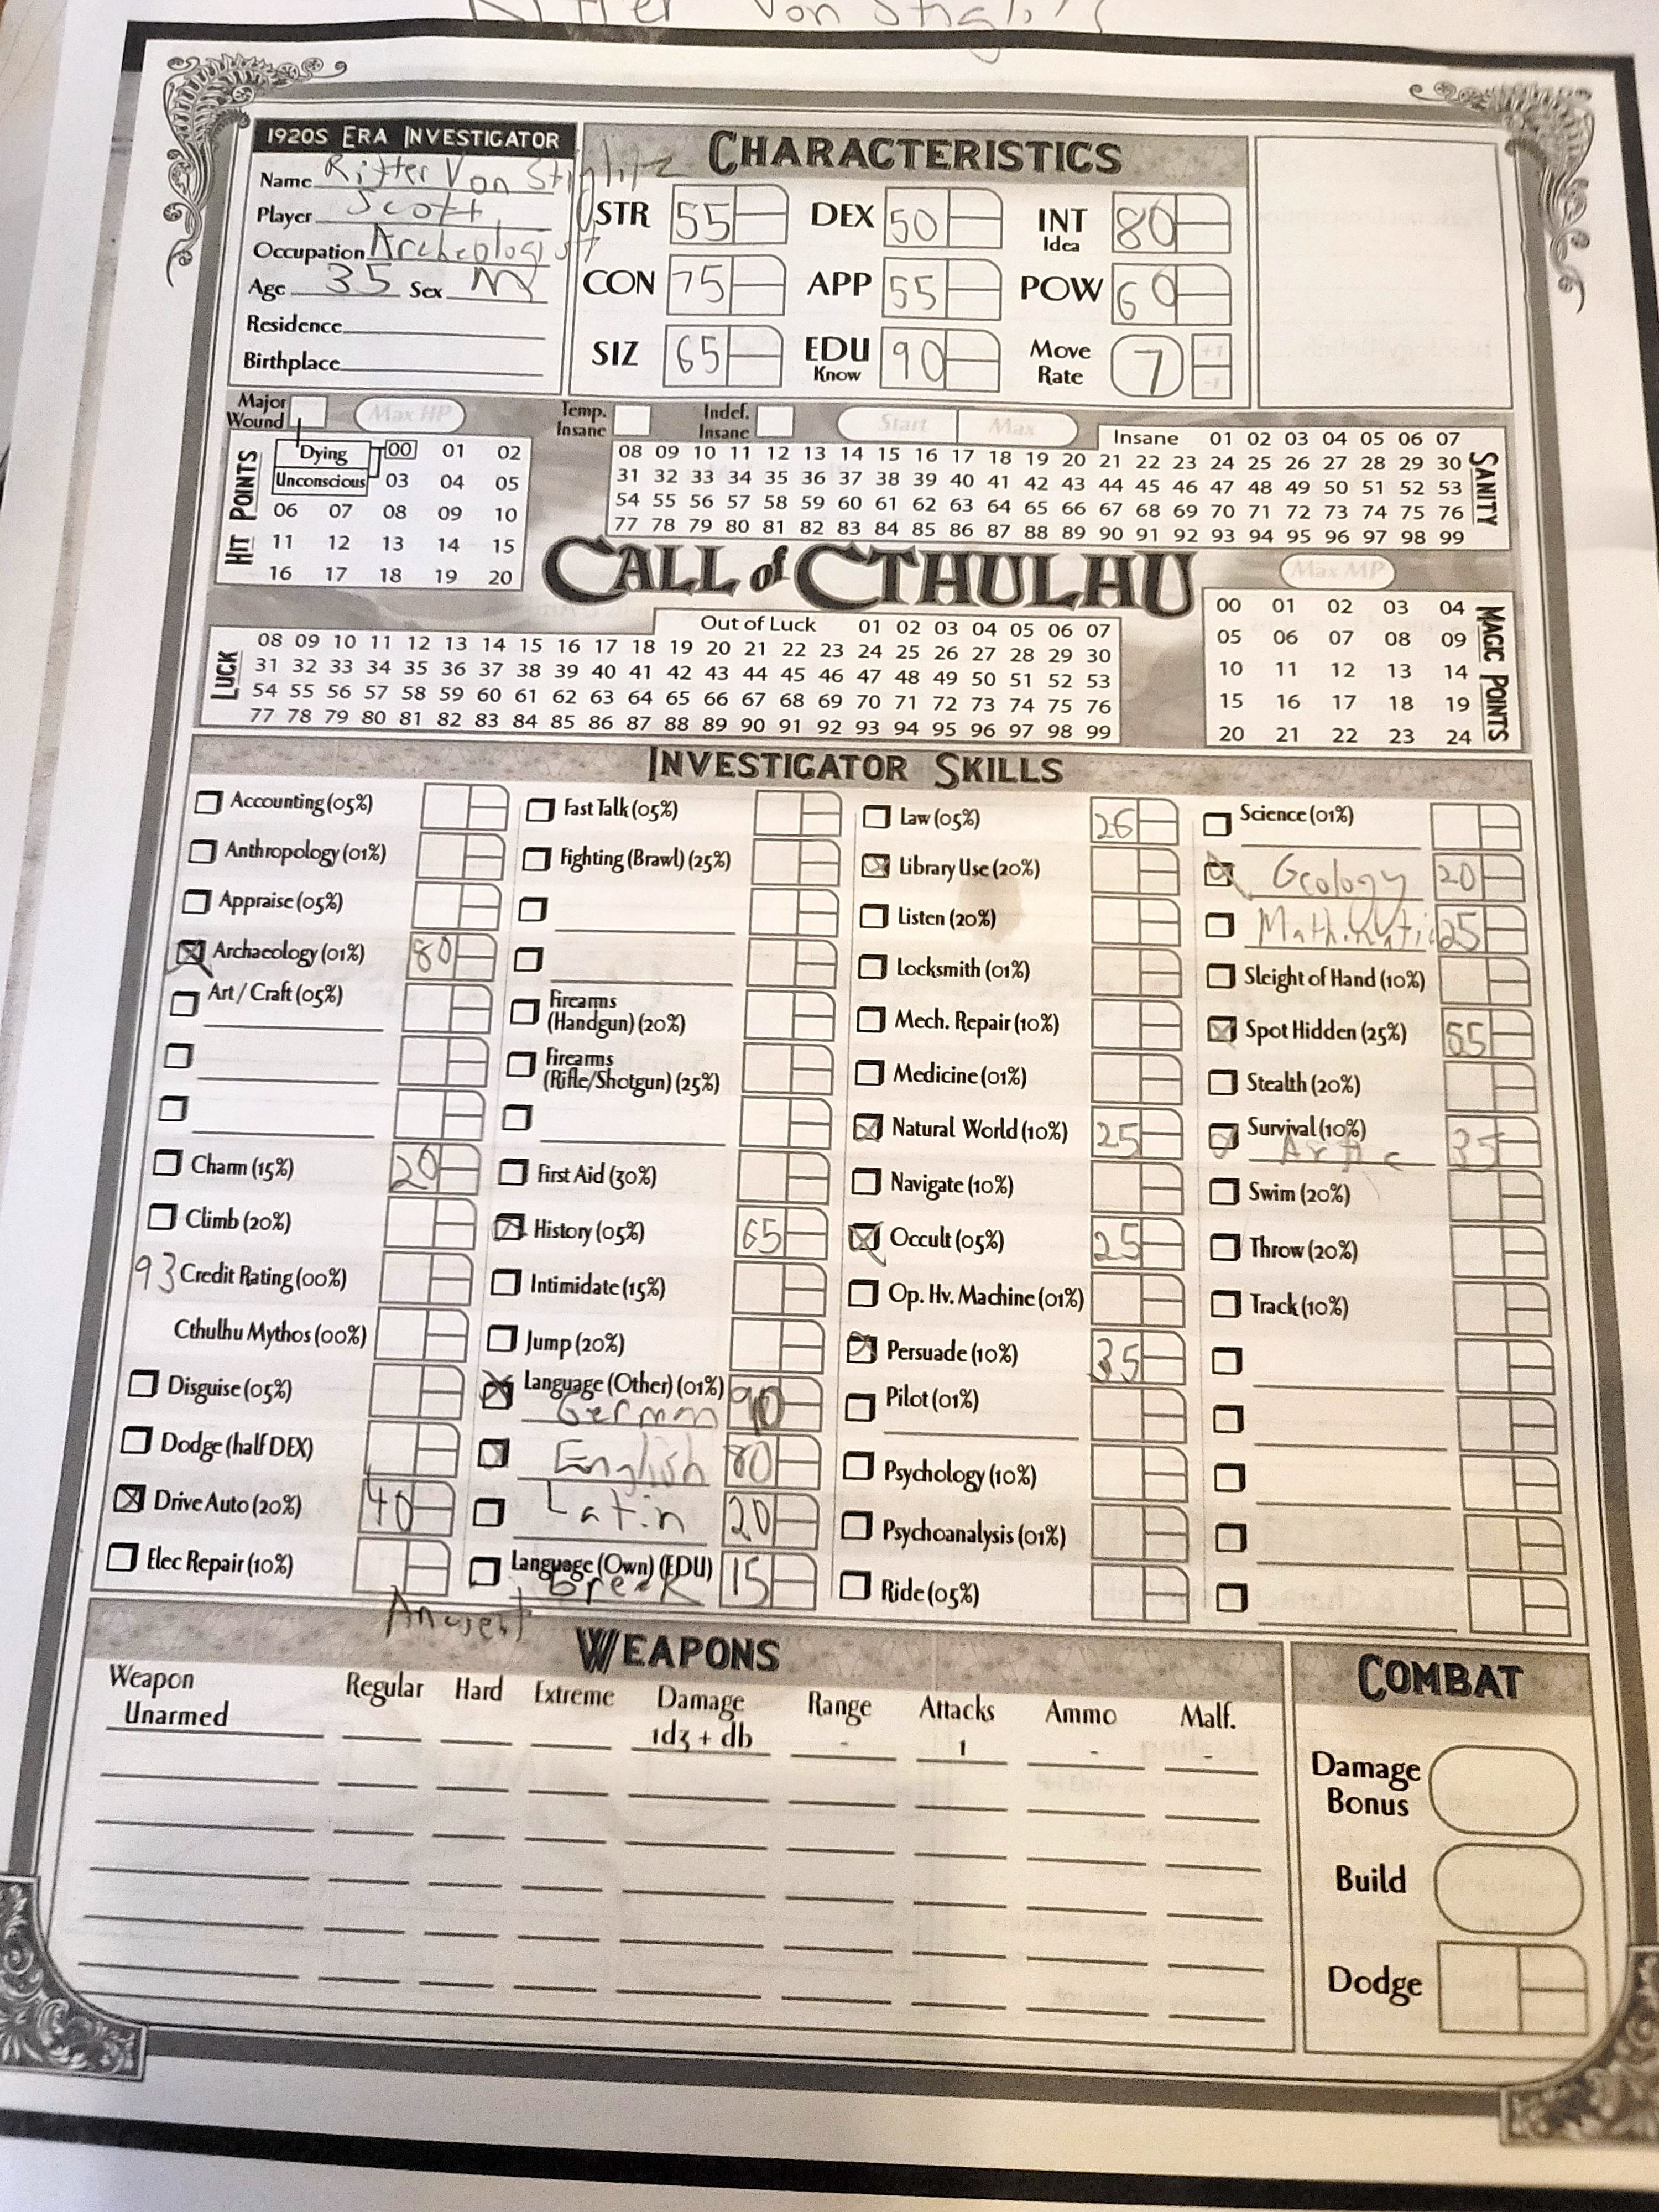 Ritter Von Stigli
1920s Era Investigator
Name Ritter Von Stiglitz
Player Scott
Occupation Archeologist
Age 35 Sex M
Residence
Birthplace
Characteristics
STR 55 DEX 50 INT Idea 80
CON 75 APP 55 POW 60
SIZ 65 EDU Know 90 Move Rate 7 +1 -1
Major Wound Max HP
Hit Points
Dying 00 01 02
Unconscious 03 04 05
06 07 08 09 10
11 12 13 14 15
16 17 18 19 20
Temp. Insane Indef. Insane Start Max
Sanity
Insane 01 02 03 04 05 06 07
08 09 10 11 12 13 14 15 16 17 18 19 20 21 22 23 24 25 26 27 28 29 30
31 32 33 34 35 36 37 38 39 40 41 42 43 44 45 46 47 48 49 50 51 52 53
54 55 56 57 58 59 60 61 62 63 64 65 66 67 68 69 70 71 72 73 74 75 76
77 78 79 80 81 82 83 84 85 86 87 88 89 90 91 92 93 94 95 96 97 98 99
Call of Cthulhu
Luck
Out of Luck 01 02 03 04 05 06 07
08 09 10 11 12 13 14 15 16 17 18 19 20 21 22 23 24 25 26 27 28 29 30
31 32 33 34 35 36 37 38 39 40 41 42 43 44 45 46 47 48 49 50 51 52 53
54 55 56 57 58 59 60 61 62 63 64 65 66 67 68 69 70 71 72 73 74 75 76
77 78 79 80 81 82 83 84 85 86 87 88 89 90 91 92 93 94 95 96 97 98 99
Max MP
Magic Points
00 01 02 03 04
05 06 07 08 09
10 11 12 13 14
15 16 17 18 19
20 21 22 23 24
Investigator Skills
Accounting (05%)
Anthropology (01%)
Appraise (05%)
Archaeology (01%) 80
Art / Craft (05%)
Charm (15%) 20
Climb (20%)
93 Credit Rating (00%)
Cthulhu Mythos (00%)
Disguise (05%)
Dodge (half DEX)
Drive Auto (20%) 40
Elec Repair (10%)
Fast Talk (05%)
Fighting (Brawl) (25%)
Firearms
(Handgun) (20%)
Firearms
(Rifle/Shotgun) (25%)
First Aid (30%)
History (05%) 65
Intimidate (15%)
Jump (20%)
Language (Other) (01%) 90
German
English 80
Latin 20
Language (Own) (EDU) 15
Ancient Greek
Law (05%) 26
Library Use (20%)
Listen (20%)
Locksmith (01%)
Mech. Repair (10%)
Medicine (01%)
Natural World (10%) 25
Navigate (10%)
Occult (05%) 25
Op. Hv. Machine (01%)
Persuade (10%) 35
Pilot (01%)
Psychology (10%)
Psychoanalysis (01%)
Ride (05%)
Science (01%)
Geology 20
25
Sleight of Hand (10%)
Spot Hidden (25%) 55
Stealth (20%)
Survival (10%) 35
Swim (20%)
Throw (20%)
Track (10%)
Weapons
Weapon Regular Hard Extreme Damage Range Attacks Ammo Malf.
Unarmed 1d3 + db - 1 - -
Combat
Damage Bonus
Build
Dodge